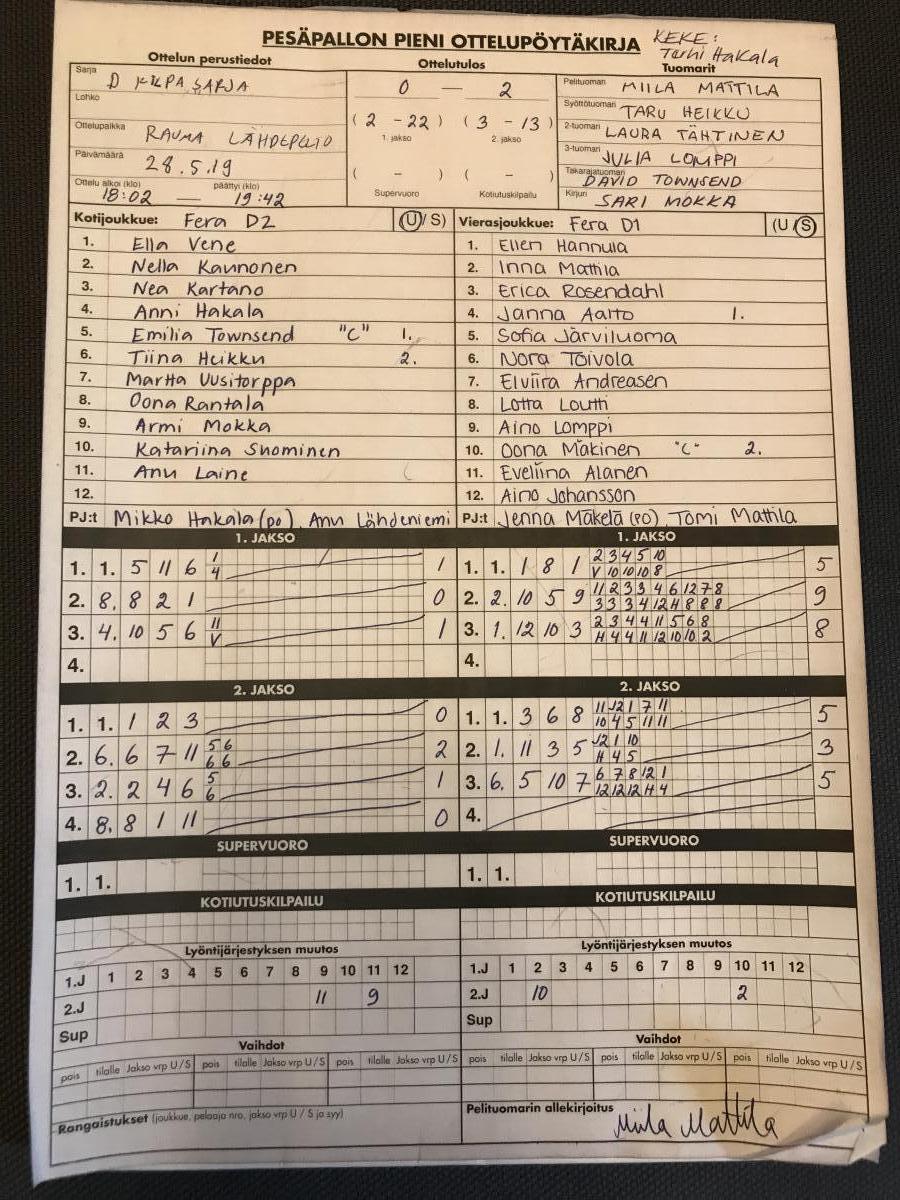 PESÄPALLON PIENI OTTELUPÖYTÄKIRJA
KEKE:
Tarhi Hakala
Ottelun perustiedot
Ottelutulos
Tuomarit
Sarja D KILPA SARJA
Lohko
Ottelupaikka RAUMA LÄHDEPELTO
Päivämäärä 28.5.19
Ottelu alkoi (klo) päättyi (klo)
18:02 — 19:42
0 — 2
(2 - 22) (3 - 13)
1. jakso 2. jakso
( - ) ( - )
Supervuoro Kotiutuskilpailu
Pelituomari MIILA MATTILA
Syöttötuomari TARU HEIKKU
2-tuomari LAURA TÄHTINEN
3-tuomari JULIA LOMPPI
Takarajatuomari DAVID TOWNSEND
Kirjuri SARI MOKKA
Kotijoukkue: Fera D2 (U/S)
1. Ella Vene
2. Nella Kaunonen
3. Nea Kartano
4. Anni Hakala
5. Emilia Townsend "C" 1.
6. Tiina Heikku 2.
7. Martta Uusitorppa
8. Oona Rantala
9. Armi Mokka
10. Katariina Suominen
11. Anu Laine
12.
PJ:t Mikko Hakala (po), Anu Lähdeniemi
Vierasjoukkue: Fera D1 (U/S)
1. Ellen Hannula
2. Inna Mattila
3. Erica Rosendahl
4. Janna Aalto 1.
5. Sofia Järviluoma
6. Nora Toivola
7. Elviira Andreasen
8. Lotta Loutti
9. Aino Lomppi
10. Oona Mäkinen "C" 2.
11. Eveliina Alanen
12. Aino Johansson
PJ:t Jenna Mäkelä (po), Tomi Mattila
1. JAKSO
1. 1. 5 11 6 1 1
4
2. 8. 8 2 1 0
3. 4. 10 5 6 11 1
V
4.
1. JAKSO
1. 1. 1 8 1 2 3 4 5 10 5
V 10 10 10 8
2. 2. 10 5 9 11 2 3 3 4 6 12 7 8 9
3 3 3 4 12 H 8 8 8
3. 1. 12 10 3 2 3 4 4 11 5 6 8 8
H 4 4 11 12 10 10 2
4.
2. JAKSO
1. 1. 1 2 3 0
2. 6. 6 7 11 5 6 2
6 6
3. 2. 2 4 6 5 1
6
4. 8. 8 1 11 0
2. JAKSO
1. 1. 3 6 8 11 12 1 7 11 5
10 4 5 11 11
2. 1. 11 3 5 12 1 10 3
H 4 5
3. 6. 5 10 7 6 7 8 12 1 5
12 12 12 H 4
4.
SUPERVUORO
1. 1.
SUPERVUORO
1. 1.
KOTIUTUSKILPAILU
KOTIUTUSKILPAILU
Lyöntijärjestyksen muutos
1.J 1 2 3 4 5 6 7 8 9 10 11 12
2.J 11 9
Sup
Lyöntijärjestyksen muutos
1.J 1 2 3 4 5 6 7 8 9 10 11 12
2.J 10 2
Sup
Vaihdot
pois tilalle Jakso vrp U/S pois tilalle Jakso vrp U/S pois tilalle Jakso vrp U/S
Vaihdot
pois tilalle Jakso vrp U/S pois tilalle Jakso vrp U/S pois tilalle Jakso vrp U/S
Rangaistukset (joukkue, pelaaja nro, jakso vrp U / S ja syy)
Pelituomarin allekirjoitus
Miila Mattila